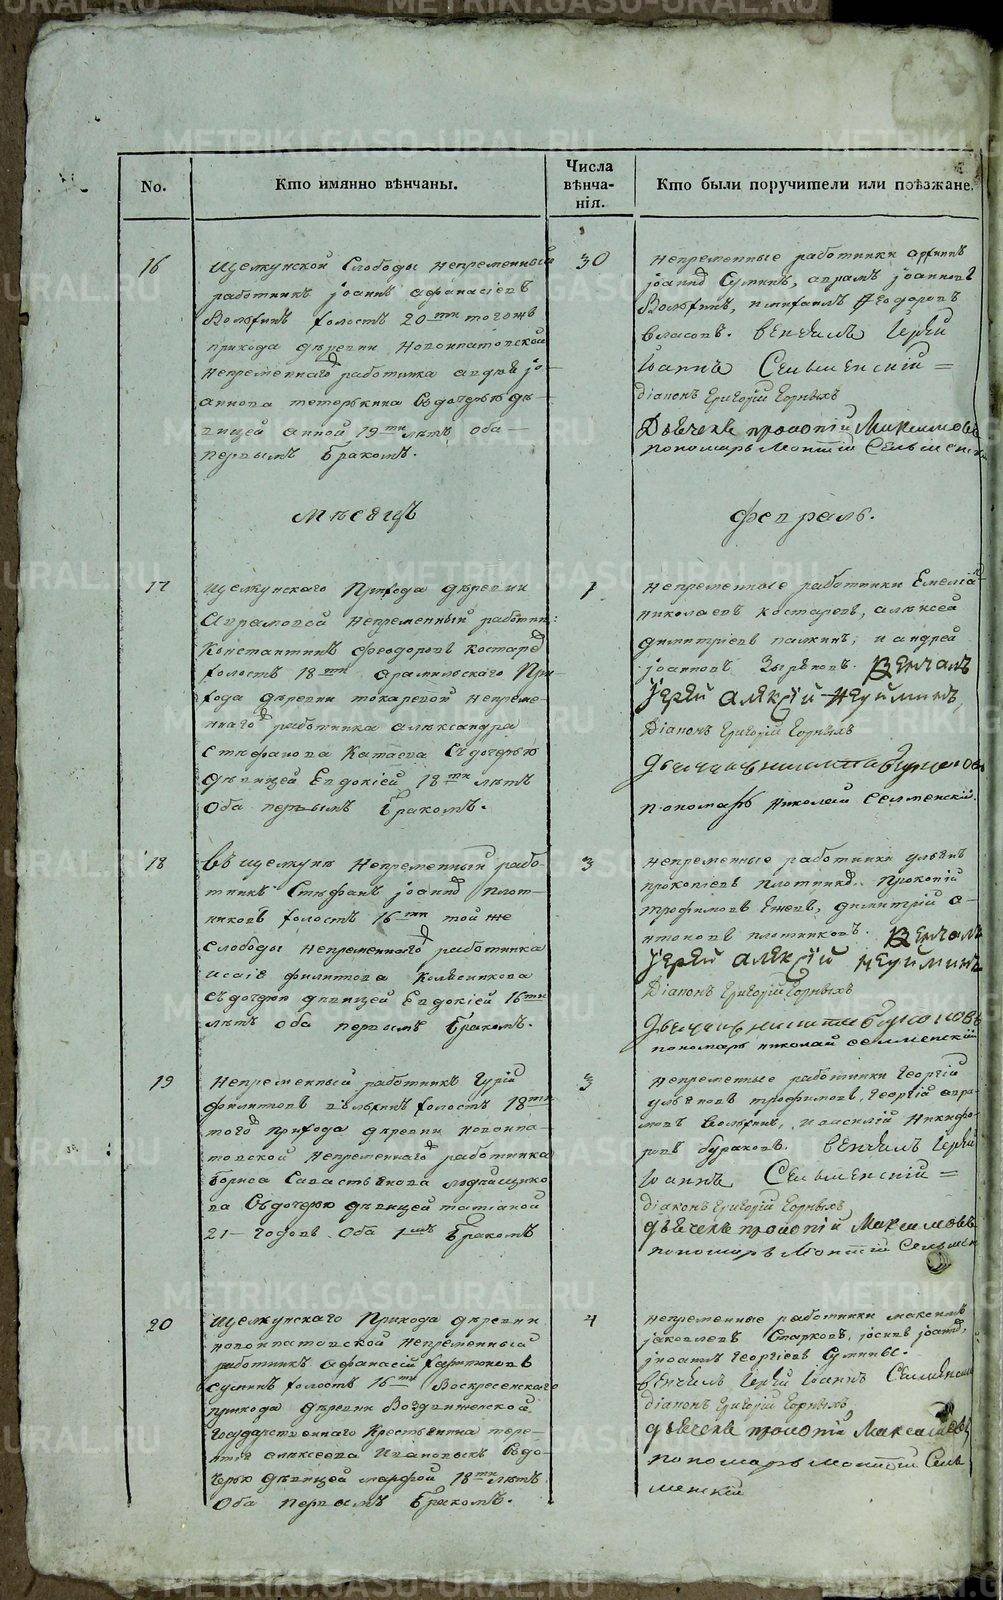 No.
Кто имянно вѣнчаны.
Числа
вѣнча-
нія.
Кто были поручители или поѣзжане.
16
Щелкунской Слободы непременный
работникъ іоаннъ афанасіевъ
холостъ 20ти тогожъ
прихода деревни Новоипатовской
непременнаго работника авдѣя іо-
аннова тетеркина съ дочерью дѣ-
вицей анной 19ти лѣтъ, оба
первымъ бракомъ.
30
непременные работники
іоаннъ Суминъ, аврамъ іоанновъ
и михаилъ Феодоровъ
власовъ. вѣнчалъ іерей
іоаннъ Селменскій =
діаконъ Григорій Горныхъ
Дьячекъ прокопій Максимовъ
пономарь Монтій Сельменскій
Мѣсяцъ
Февраль.
17
Щелкунскаго прихода деревни
Аврамовой непременный работни:
Константинъ Феодоровъ костарев
холостъ 18ти арамильскаго При-
хода деревни токаревой непреме-
ннаго работника александра
Стефанова Катаева съ дочерью
дѣвицей Евдокіей 18ти лѣтъ
Оба первымъ бракомъ.
1
непременные работники Емеліа
николаевъ костаревъ, алексей
димитріевъ палкинъ, и андрей
іоанновъ Зыряновъ. Венчалъ
іерей алексій Неуйминъ,
Діаконъ Григорій Горныхъ
пономарь Николай Селменскій.
18
въ щелкунѣ Непременный рабо-
тникъ Стефанъ іоаннов плот-
никовъ холостъ 16ти той же
Слободы непременнаго работника
исаіе филипова Колесникова
съ дочерю дѣвицей Евдокіей 16ти
лѣтъ оба первымъ бракомъ.
3
непременные работники ульянъ
прокопіевъ плотников. Прокопій
трофимовъ Ежевъ, димитрій а-
нтоновъ плотниковъ. Венчалъ
іерей алексій неуйминъ
Діаконъ Григорій Горныхъ
пономарь николай селменскій
19
Непременный работникъ Гурій
филиповъ холостъ 18ти
того прихода деревни новоипа-
товской непременнаго работника
бориса Савастьянова
ва съ дочерю дѣвицей татіаной
21 годовъ. Оба 1мъ бракомъ
3
непременные работники Георгій
ульяновъ трофимовъ, Георгій авра-
мовъ и василій Никифо-
ровъ бураковъ. вѣнчалъ іерей
іоаннъ Сельменскій =
діаконъ Григорій Горныхъ
дьячекъ прокопій Максимовъ
пономарь Монтій Сельмен
20
Щелкунскаго Прихода деревни
новоипатовской Непременный
работникъ Афанасій харитоновъ
суминъ холостъ 16ти Воскресенскаго
прихода деревни Воздвиженской
Государственнаго Крестьянина тере-
нтія алексеева Ивановыхъ съ до-
черью дѣвицей марфой 18ти лѣтъ
Оба первымъ бракомъ.
4
непременные работники максимъ
іаковлевъ Старковъ, іосифъ іоаннов,
игнатъ Георгіевъ Сумины.
вѣнчалъ іерей іоаннъ Селменскій
діаконъ Григорій Горныхъ
дьячекъ прокопій Максимовъ
пономарь монтій Сель
менскій
METRIKI.GASO-URAL.RU